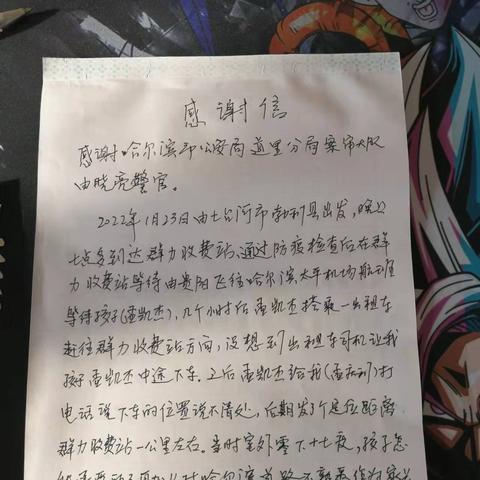 感谢信
感谢哈尔滨市公安局道里分局案审大队
由晓亮警官。
2022年1月23日由七台河市勃利县出发,晚上
七点多到达群力收费站,通过防疫检查后在群
力收费站等待由贵阳飞往哈尔滨太平机场航班
等待孩子(孟凯杰),几个小时后孟凯杰搭乘一出租车
赶往群力收费站方向,没想到出租车司机让我
孩子孟凯杰中途下车。之后孟凯杰给我(孟)打
电话说下车的位置说不清处,后期发了个定位距离
群力收费站一公里左右。当时室外零下十七度,孩子怎
对哈尔滨道路不熟悉作为家长